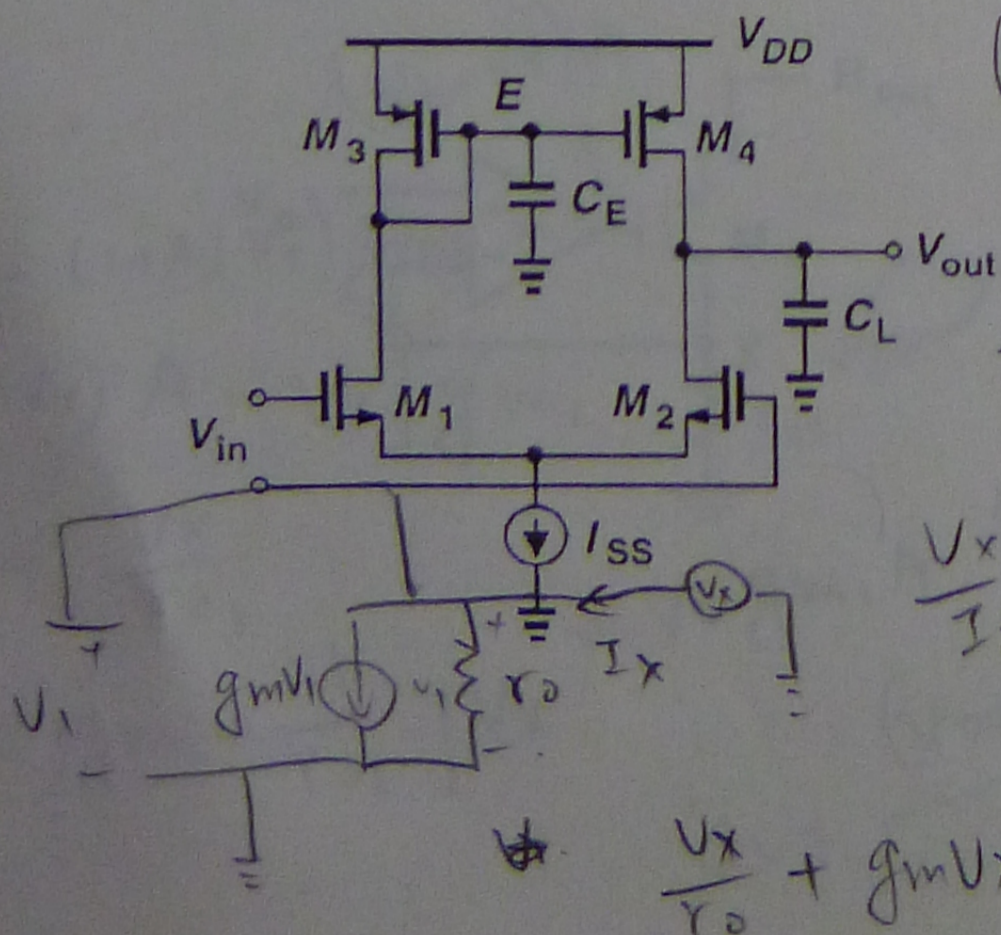 V_DD
E
M_3
M_4
C_E
V_out
C_L
M_1
M_2
V_in
I_SS
V_x
I_x
V_x
I
g_mV_1
v_1
r_0
+
-
V_1
+
-
V_x / r_0 + g_mV_x